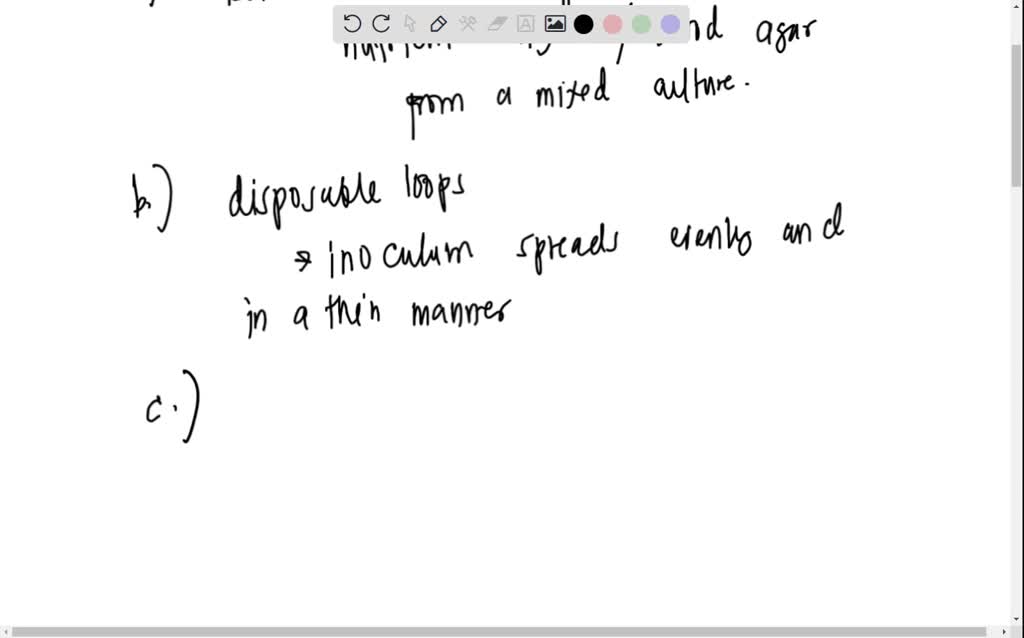 nd agar
from a mixed culture.
b.) disposable loops
→ inoculum spreads evenly and
in a thin manner
c.)